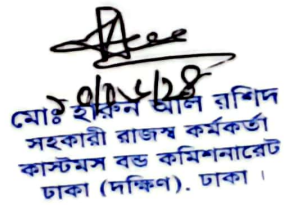 মোঃ হারুন আল রশিদ
সহকারী রাজস্ব কর্মকর্তা
কাস্টমস বন্ড কমিশনারেট
ঢাকা (দক্ষিণ). ঢাকা।